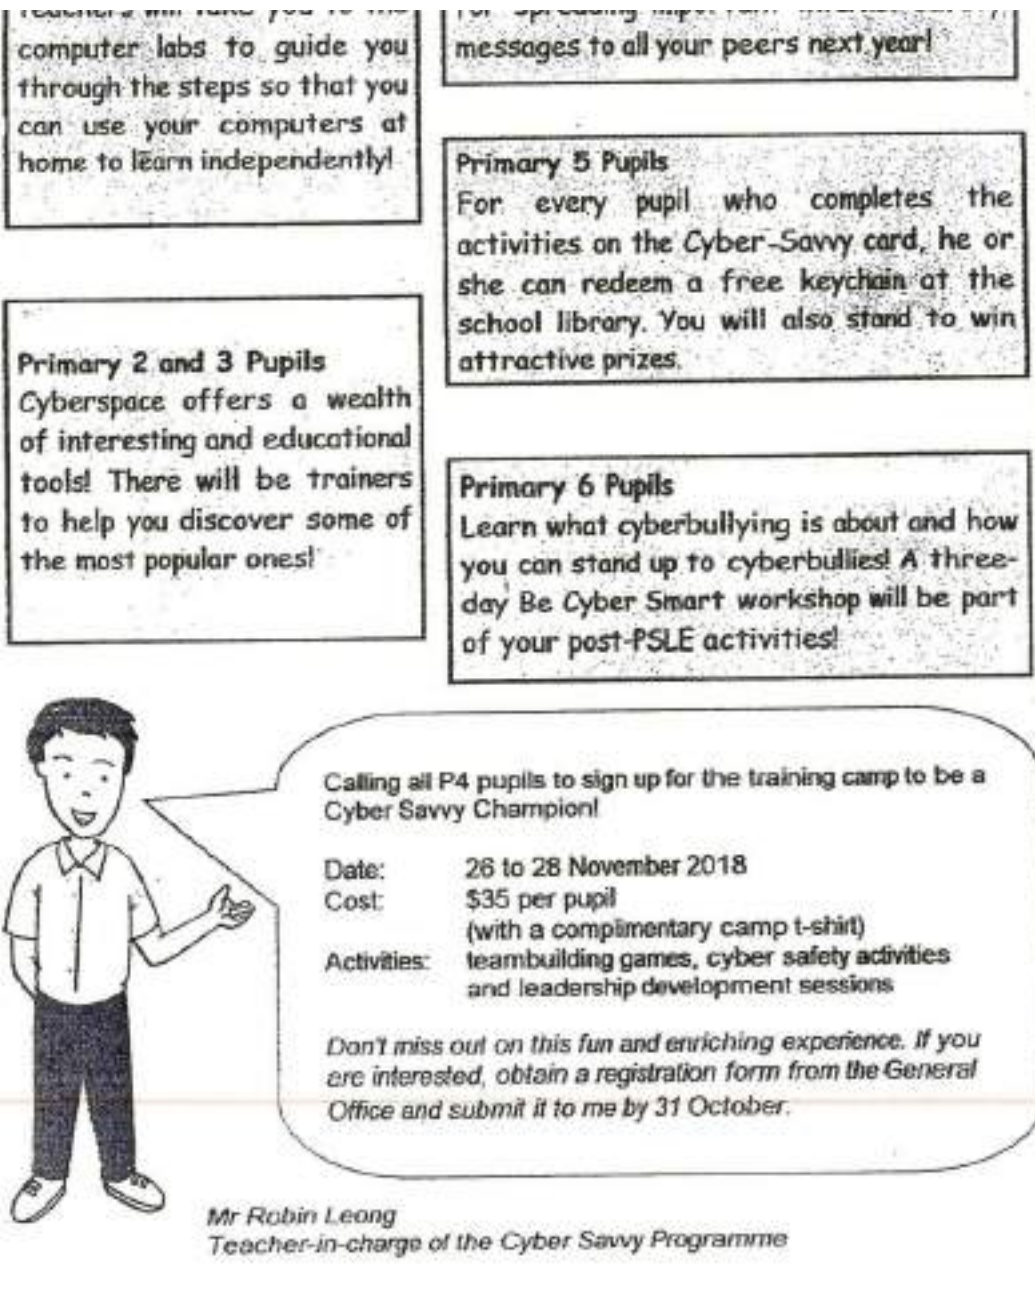 teachers will take you to the
computer labs to guide you
through the steps so that you
can use your computers at
home to learn independently!
Primary 2 and 3 Pupils
Cyberspace offers a wealth
of interesting and educational
tools! There will be trainers
to help you discover some of
the most popular ones!
for spreading important
messages to all your peers next year!
Primary 5 Pupils
For every pupil who completes the
activities on the Cyber-Savvy card, he or
she can redeem a free keychain at the
school library. You will also stand to win
attractive prizes.
Primary 6 Pupils
Learn what cyberbullying is about and how
you can stand up to cyberbullies! A three-
day Be Cyber Smart workshop will be part
of your post-PSLE activities!
Calling all P4 pupils to sign up for the training camp to be a
Cyber Savvy Champion!
Date: 26 to 28 November 2018
Cost: $35 per pupil
(with a complimentary camp t-shirt)
Activities: teambuilding games, cyber safety activities
and leadership development sessions
Don't miss out on this fun and enriching experience. If you
are interested, obtain a registration form from the General
Office and submit it to me by 31 October.
Mr Robin Leong
Teacher-in-charge of the Cyber Savvy Programme